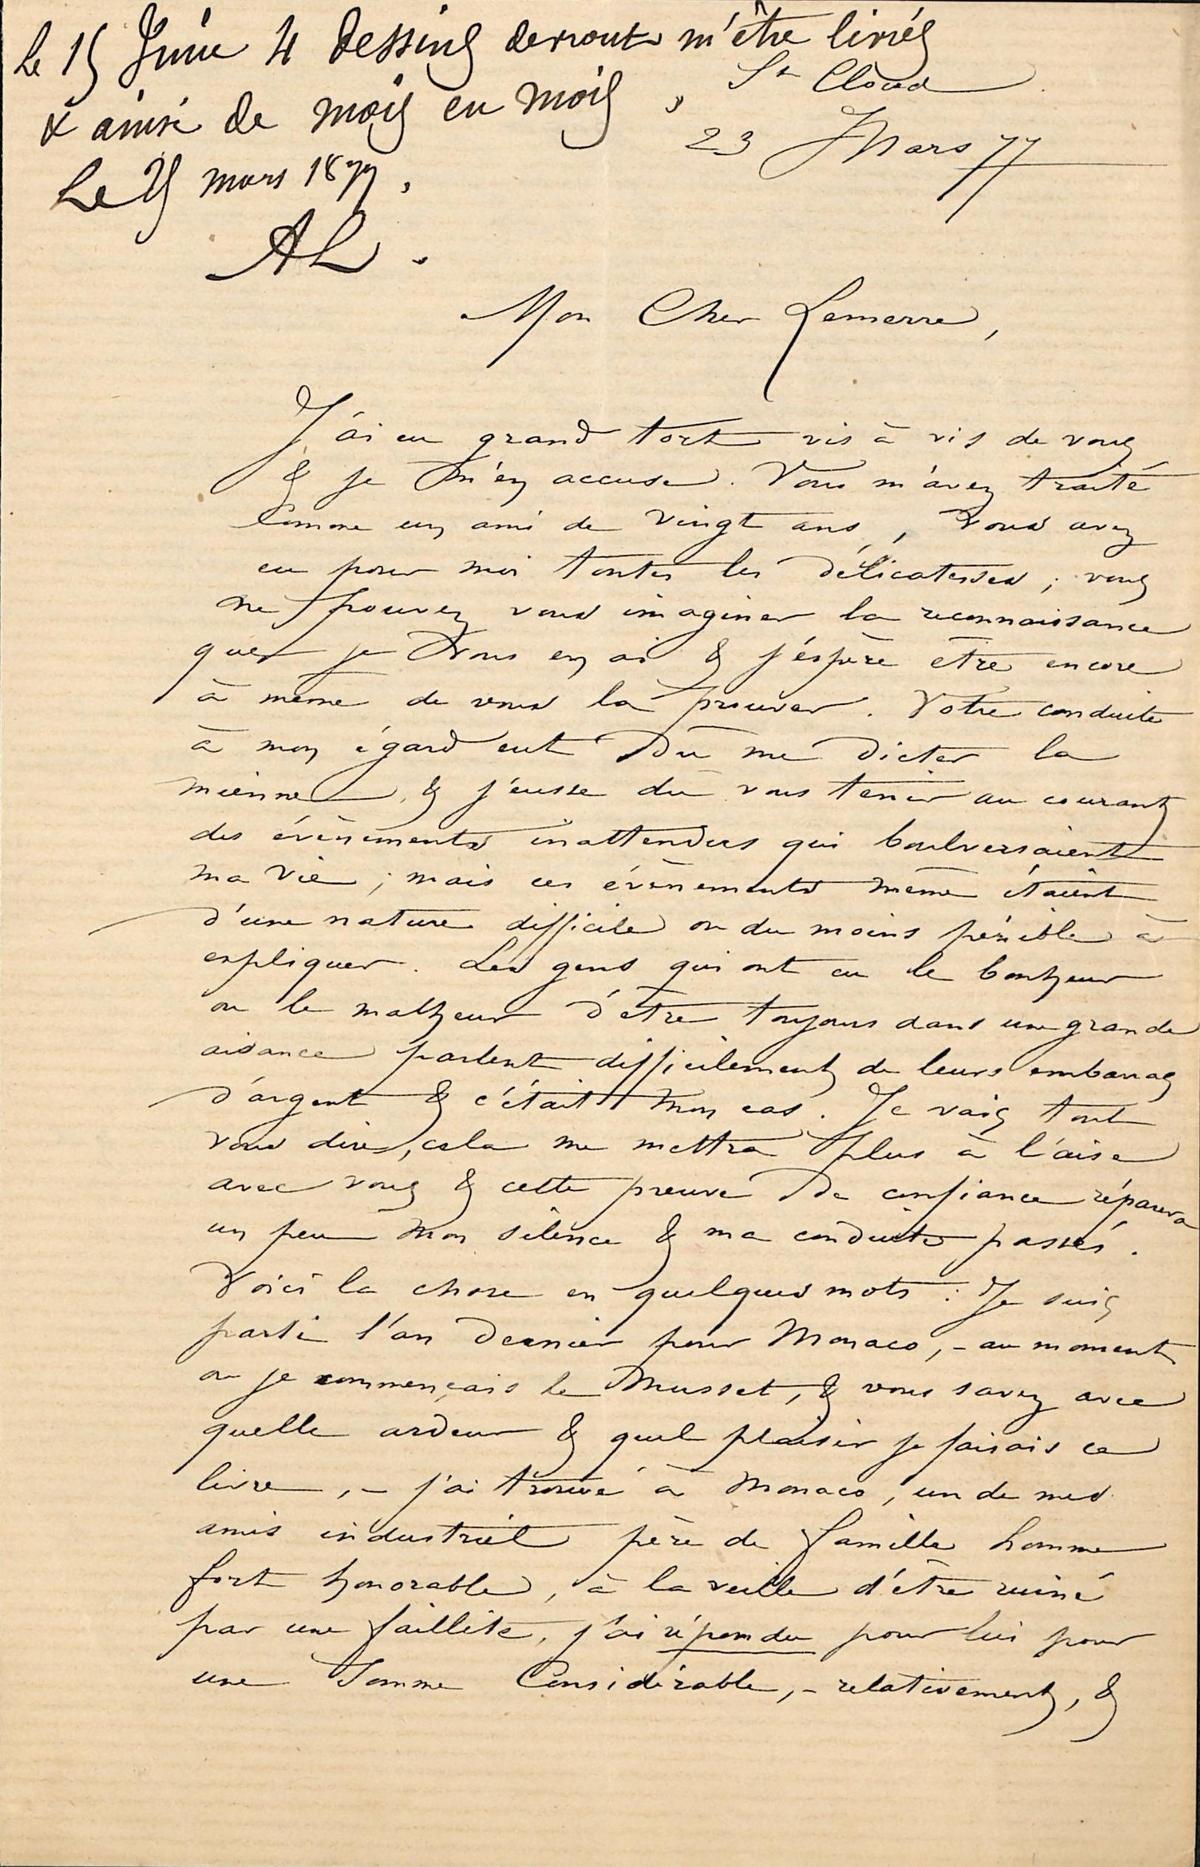 Le 15 Juin 4 dessins devront m'être livrés
& ainsi de mois en mois,
Le 25 mars 1877.
AL.
St Cloud
23 Mars 77
Mon Cher Lemerre,
J'ai eu grand tort vis à vis de vous
& je m'en accuse. Vous m'avez traité
comme un ami de vingt ans, vous avez
eu pour moi toutes les délicatesses ; vous
ne pouvez vous imaginer la reconnaissance
que je vous en ai & j'espère être encore
à même de vous la prouver. Votre conduite
à mon égard eut dû me dicter la
mienne & j'eusse dû vous tenir au courant
des évènements inattendus qui boulversaient
ma vie ; mais ces évènements même étaient
d'une nature difficile ou du moins pénible à
expliquer. Les gens qui ont eu le bonheur
ou le malheur d'être toujours dans une grande
aisance parlent difficilement de leurs embarras
d'argent & c'était mon cas. Je vais tout
vous dire, cela me mettra plus à l'aise
avec vous & cette preuve de confiance réparera
un peu mon silence & ma conduite passés.
Voici la chose en quelques mots : Je suis
parti l'an dernier pour Monaco, - au moment
ou je commençais le Musset, & vous savez avec
quelle ardeur & quel plaisir je faisais ce
livre, - j'ai trouvé à Monaco, un de mes
amis industriel père de famille homme
fort honorable, à la veille d'être ruiné
par une faillite, j'ai répondu pour lui pour
une somme considérable, - relativement, &